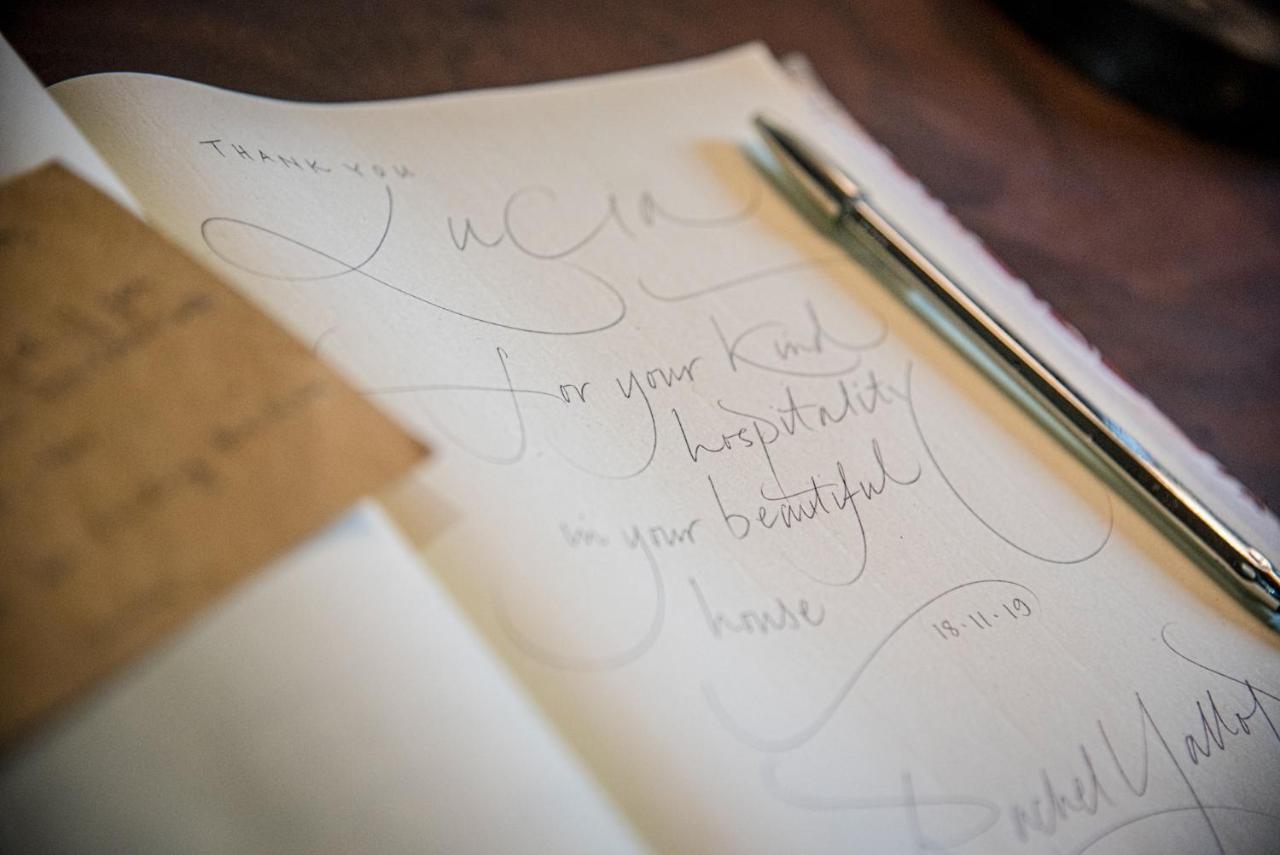 THANK YOU
Lucia
for your kind
hospitality
in your beautiful
house
18·11·19
Rachel